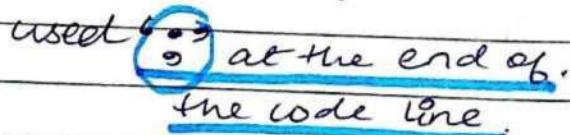 used ";" at the end of.
the code line.